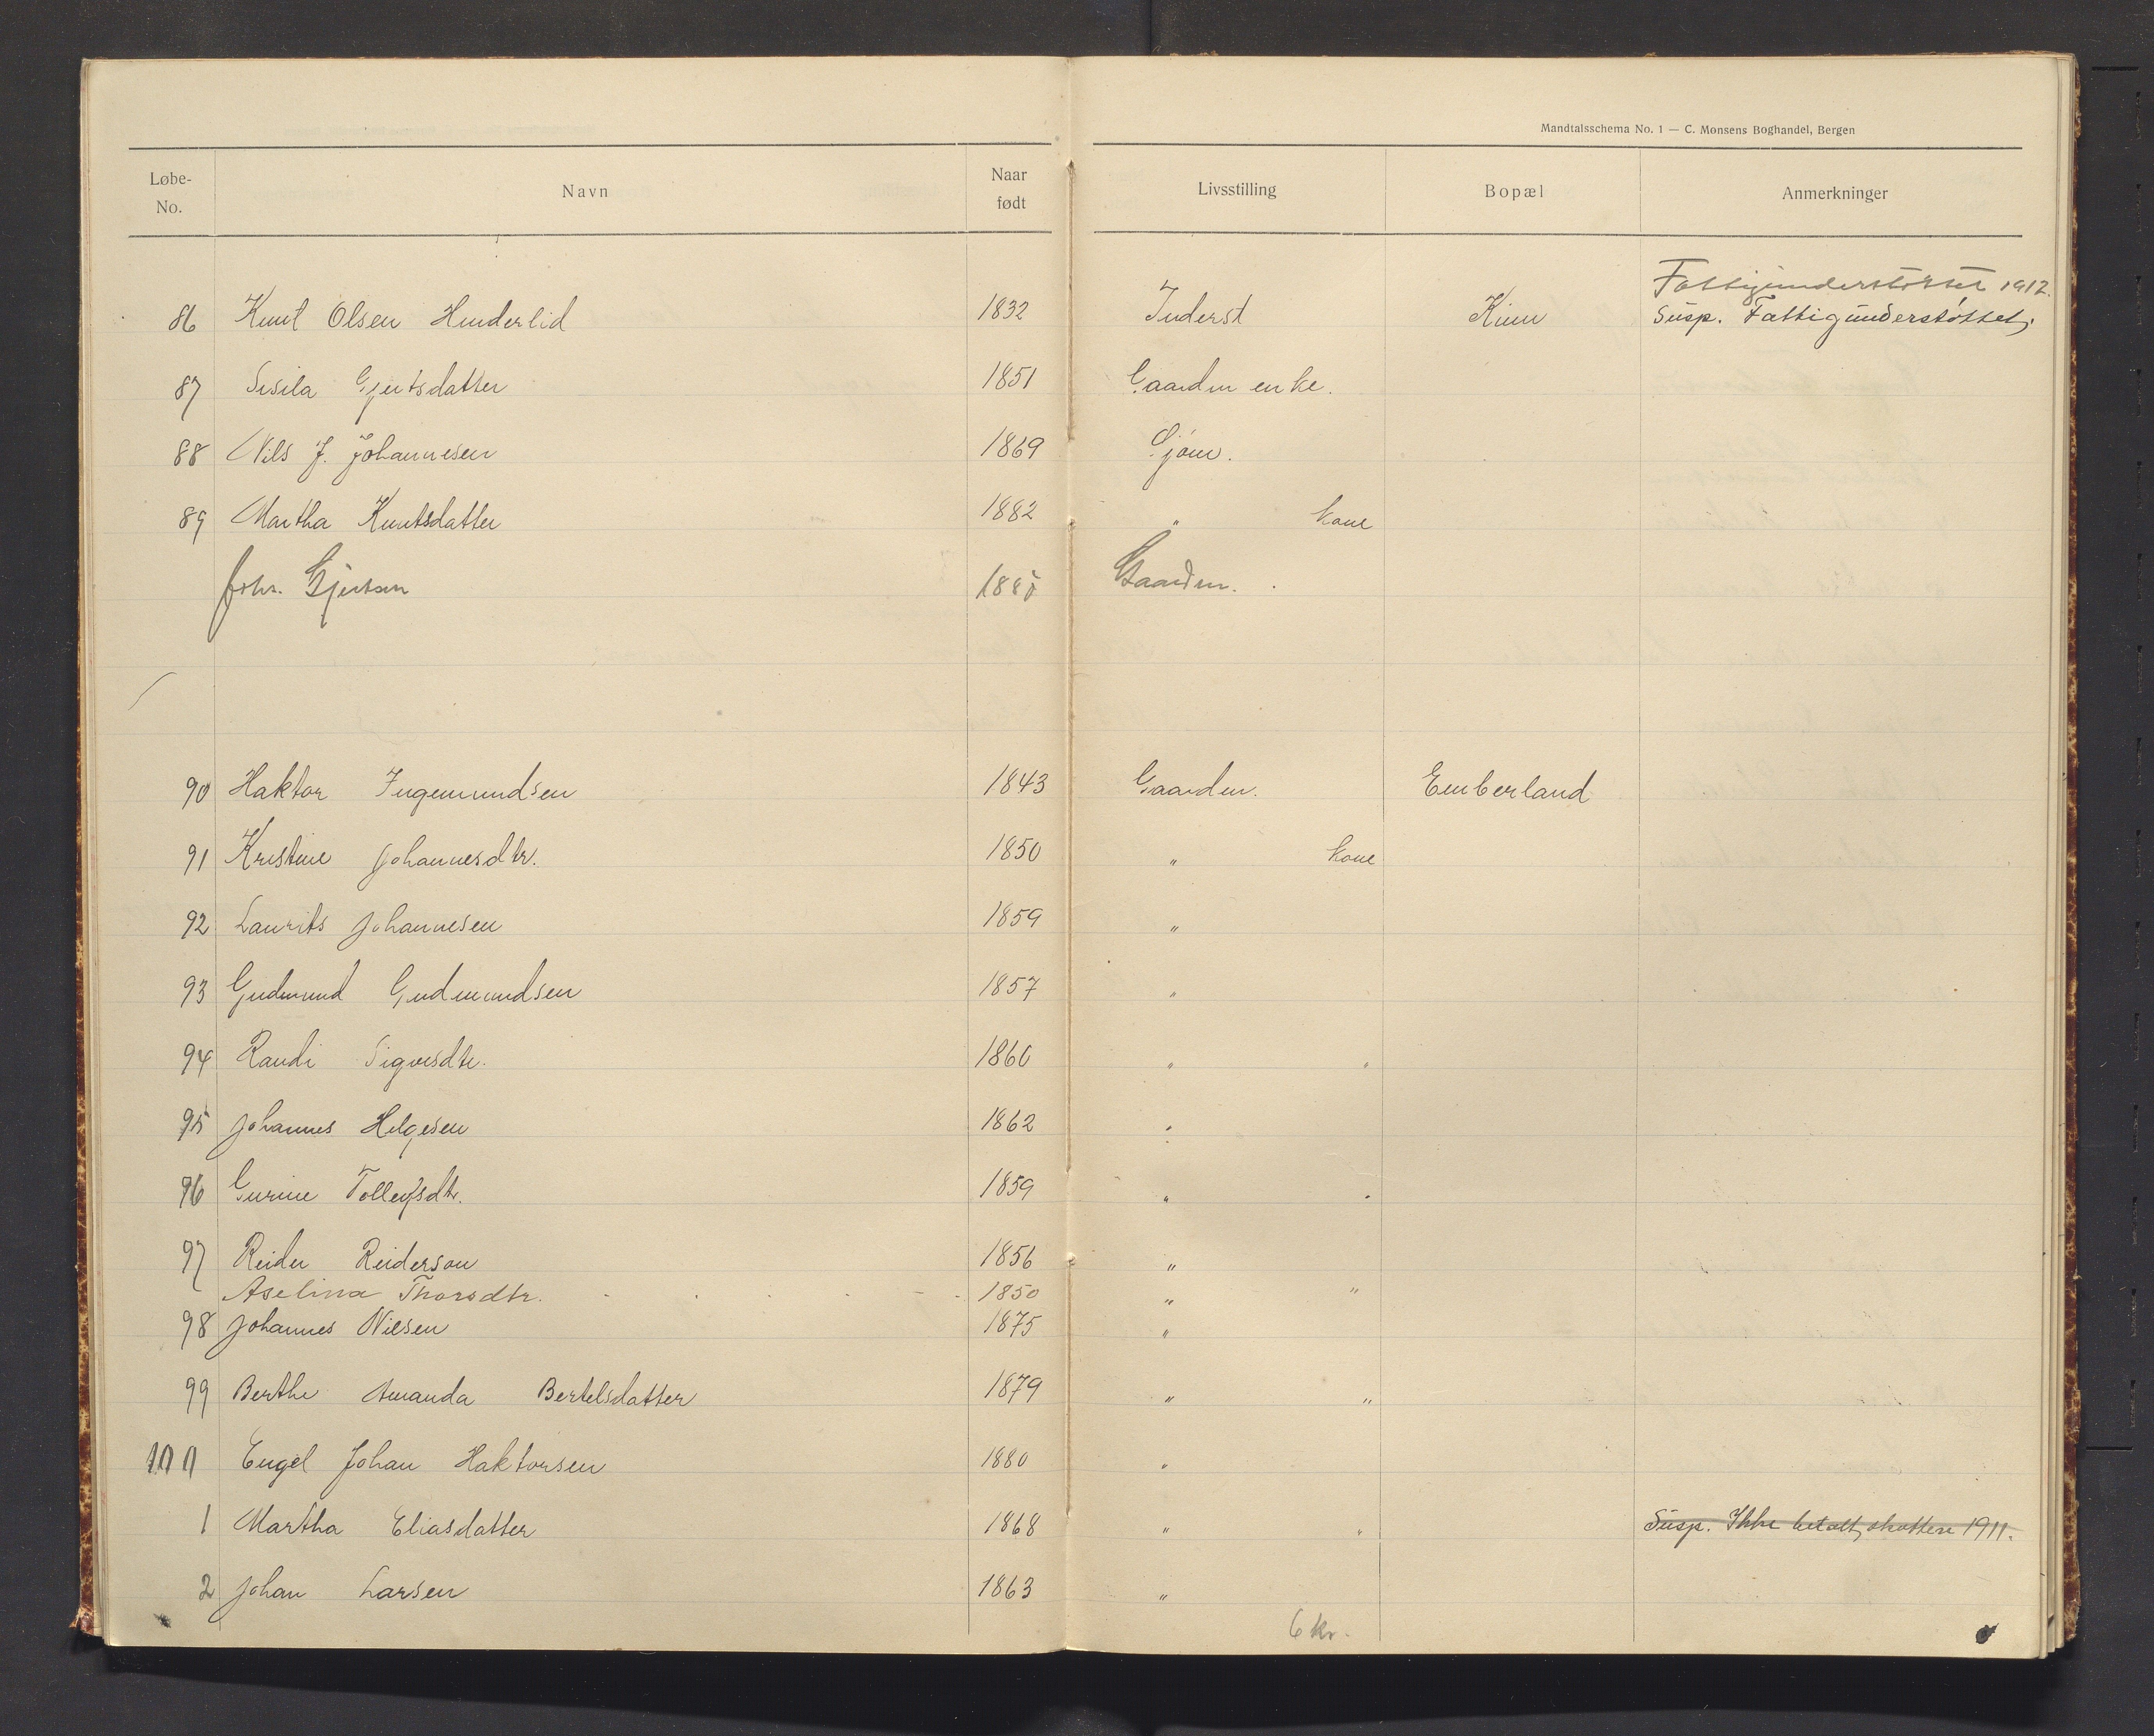 Mandtalsschema No. 1 — C. Monsens Boghandel, Bergen
Løbe-No. Navn Naar født Livsstilling Bopæl Anmerkninger
Fattigunderstøttet 1912.
86 Knut Olsen Hinderlid 1832 Inderst Kinn Susp. Fattigunderstøttet,
87 Sisila Gjertsdatter 1851 Gaardm enke.
88 Nils J. Johannesen 1869 Sjøm.
89 Martha Knutsdatter 1882 " kone
Johs. Gjertsen 1885 Gaardm.
90 Haktor Ingemundsen 1843 Gaardm. Emberland
91 Kristine Johannesdtr. 1850 " kone
92 Laurits Johannesen 1859 "
93 Gudmund Gudmundsen 1857 "
94 Randi Sigvesdtr. 1860 " "
95 Johannes Helgesen 1862 "
96 Gurine Tollefsdtr. 1859 " "
97 Reider Reiderson 1856 "
Aselina Thorsdtr. 1850 " "
98 Johannes Nilsen 1875 "
99 Berthe Amanda Bertelsdatter 1879 " "
100 Engel Johan Haktorsen 1880 "
1 Martha Eliasdatter 1868 " " Susp. Ikke betalt, skattere 1911.
2 Johan Larsen 1863 "
6 kr.